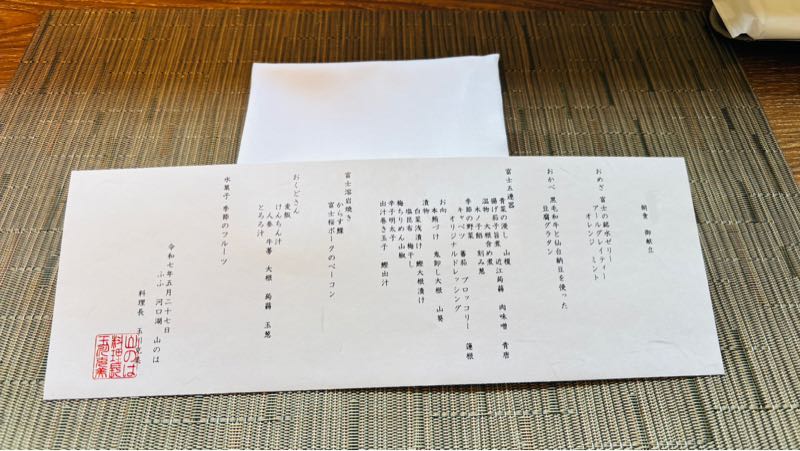 朝食 御献立
おめざ 富士の銘水ゼリー
アールグレイティー
オレンジ ミント
おかべ 黒毛和牛と仙台納豆を使った
豆腐グラタン
富士五連器
青菜の浸し 山檀
揚げ茄子旨煮 近江蒟蒻 肉味噌 青唐
温物 大根含め煮
水ノ子餡 刻み葱
季節の野菜
キャベツ 蕃茄 ブロッコリー 蓮根
オリジナルドレッシング
お向
本鮪づけ 鬼卸し大根 山葵
漬物
白菜浅漬け 鰹大根漬け
塩昆布 梅干し
梅ちりめん山椒
辛子明太子
出汁巻き玉子 鰹出汁
富士溶岩焼き
からす鰈
富士桜ポークのベーコン
おくどさん
麦飯
けんちん汁
人参 牛蒡 大根 蒟蒻 玉葱
とろろ汁
水菓子 季節のフルーツ
令和七年五月二十七日
ふふ 河口湖 山のは
料理長 玉川
山のは
料理長